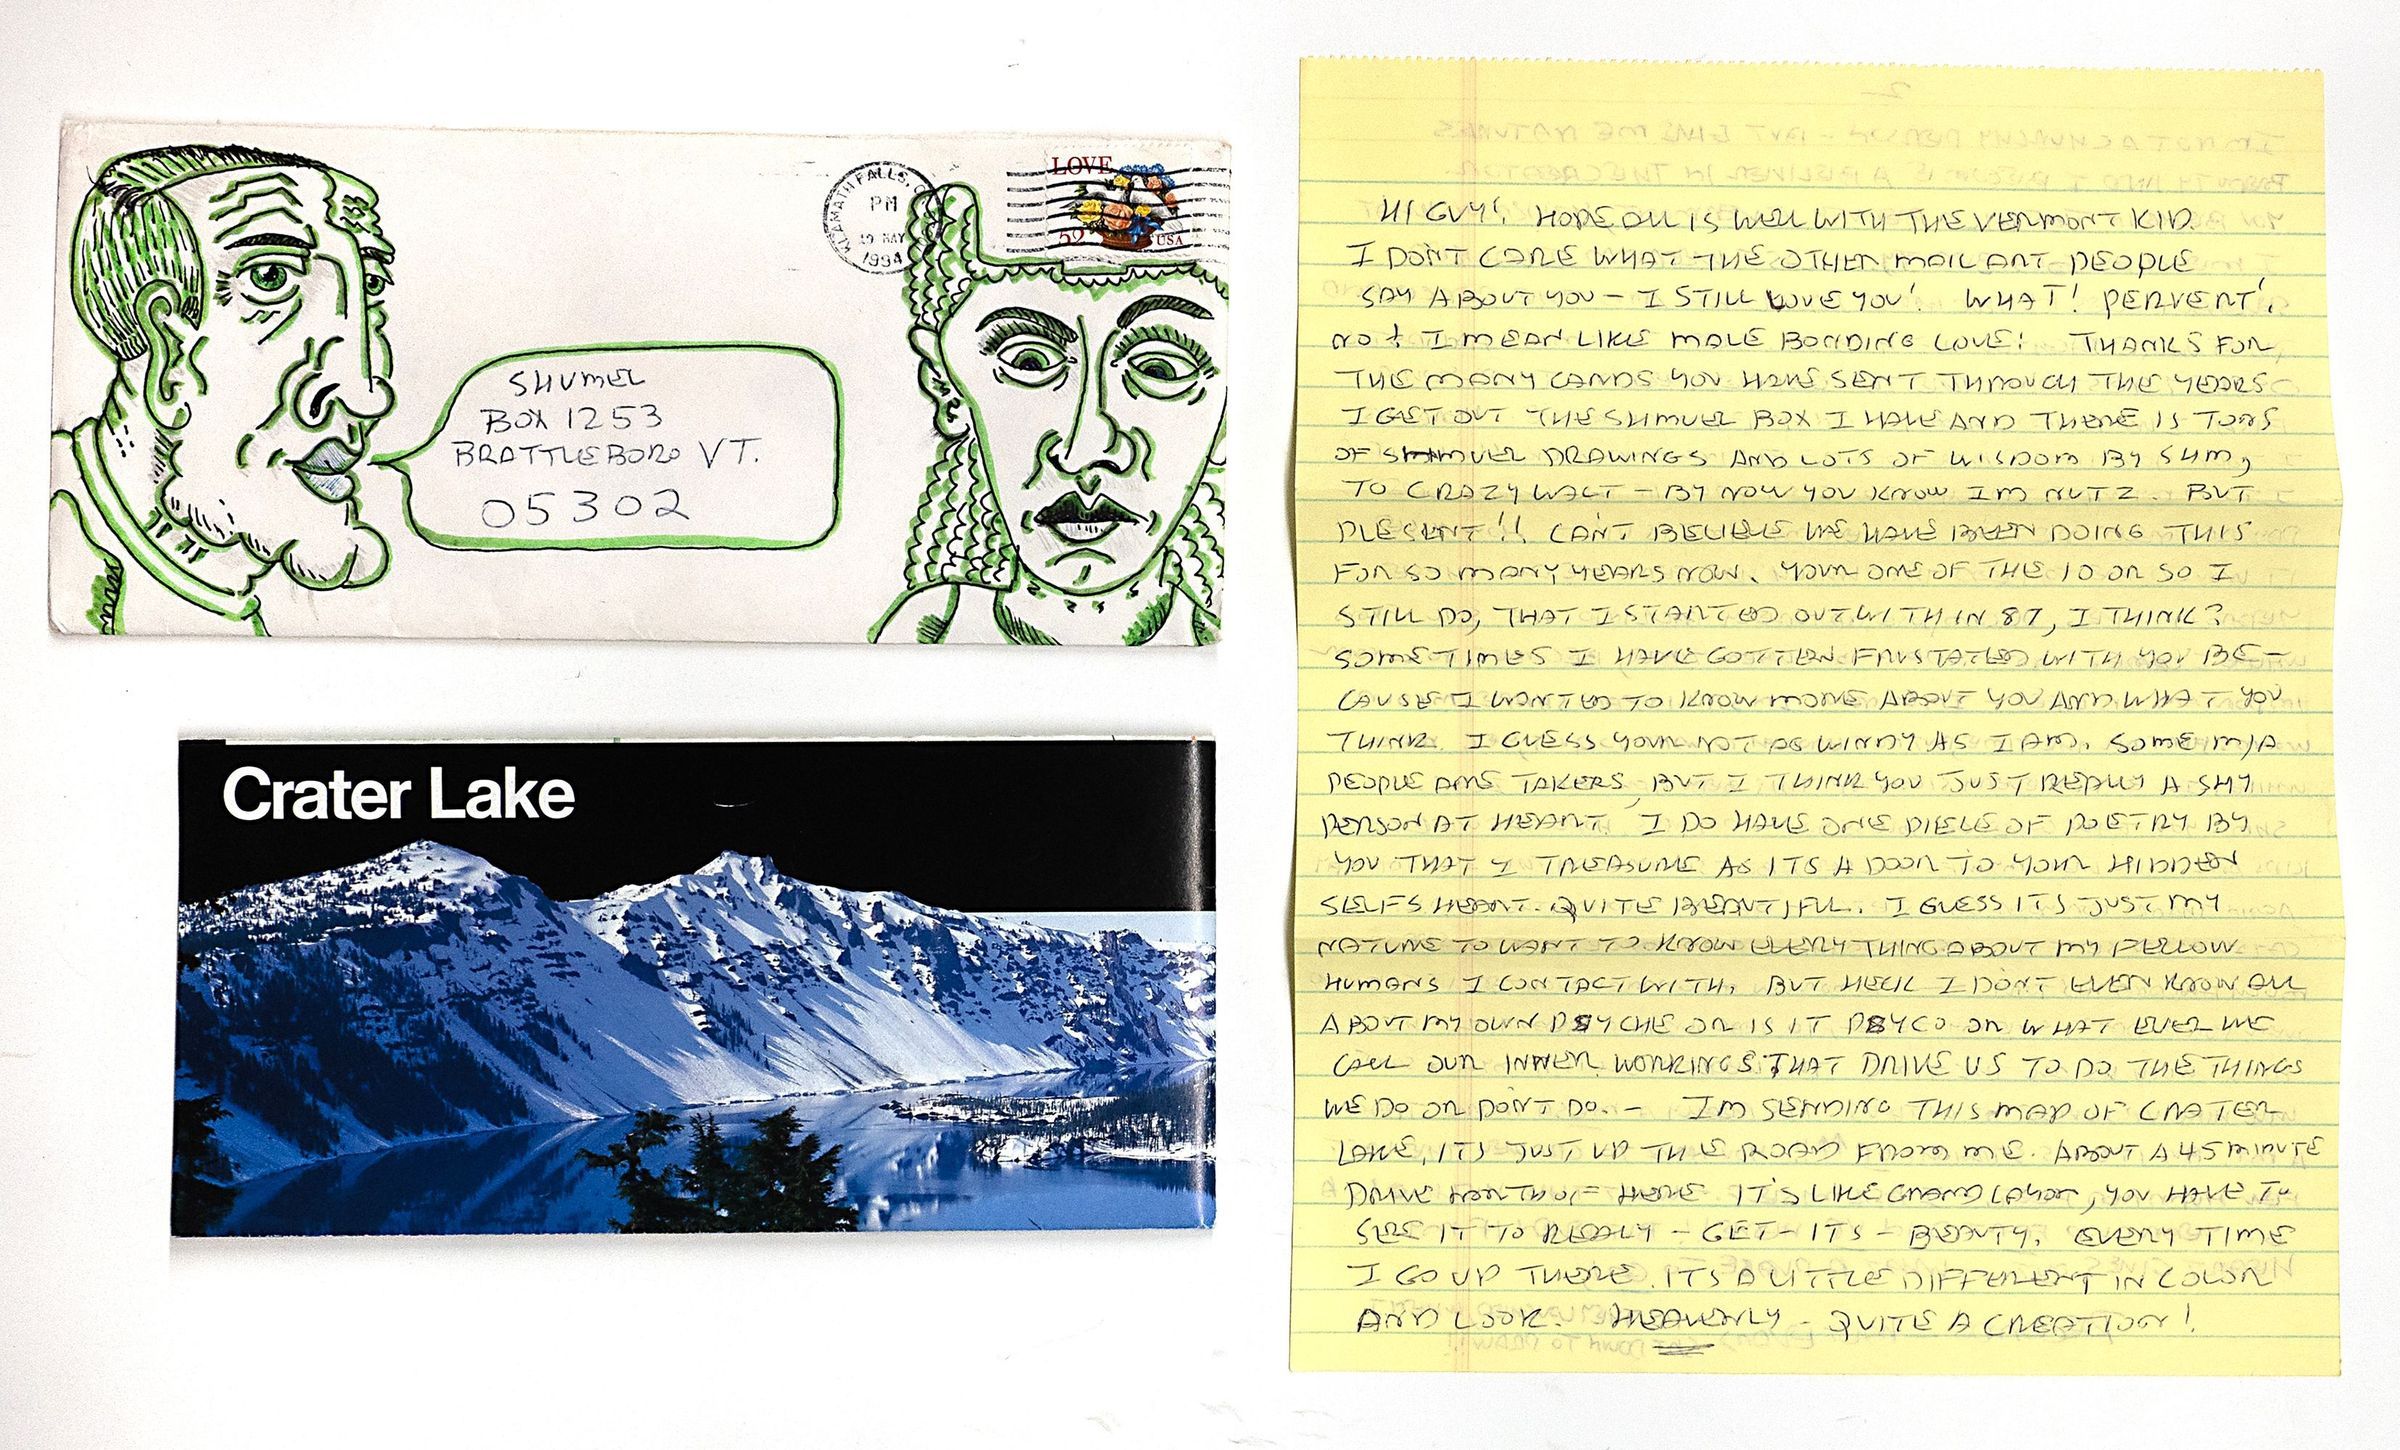 KLAMATH FALLS, O
PM
19 MAY
1994
LOVE
52 USA
SHUMEL
BOX 1253
BRATTLEBORO VT.
05302
Crater Lake
HI GUY! HOPE ALL IS WELL WITH THE VERMONT KID.
I DON'T CARE WHAT THE OTHER MAIL ART PEOPLE
SAY ABOUT YOU – I STILL LOVE YOU! WHAT! PERVERT!,
NO! I MEAN LIKE MALE BONDING LOVE! THANKS FOR
THE MANY CARDS YOU HAVE SENT THROUGH THE YEARS
I GET OUT THE SHMUEL BOX I HAVE AND THERE IS TONS
OF SHMUEL DRAWINGS AND LOTS OF WISDOM BY SHM,
TO CRAZY WALT – BY NOW YOU KNOW IM NUTZ. BUT
PLESENT!! CAN'T BELIEVE WE HAVE BEEN DOING THIS
FOR SO MANY YEARS NOW. YOUR ONE OF THE 10 OR SO I
STILL DO, THAT I STARTED OUT WITH IN 87, I THINK?
SOMETIMES I HAVE GOTTEN FRUSTATED WITH YOU BE-
CAUSE I WANTED TO KNOW MORE ABOUT YOU AND WHAT YOU
THINK. I GUESS YOUR NOT AS WINDY AS I AM. SOME M/A
PEOPLE ARE TAKERS, BUT I THINK YOU JUST REALLY A SHY
PERSON AT HEART, I DO HAVE ONE PIECE OF POETRY BY
YOU THAT I TREASURE AS ITS A DOOR TO YOUR HIDDEN
SELFS HEART. QUITE BEAUTIFUL. I GUESS ITS JUST MY
NATURE TO WANT TO KNOW EVERYTHING ABOUT MY FELLOW
HUMANS I CONTACT WITH. BUT HECK I DON'T EVEN KNOW ALL
ABOUT MY OWN PSYCHE OR IS IT PSYCO OR WHAT EVER WE
CALL OUR INNER WORKINGS THAT DRIVE US TO DO THE THINGS
WE DO OR DON'T DO. – IM SENDING THIS MAP OF CRATER
LAKE, ITS JUST UP THE ROAD FROM ME. ABOUT A 45 MINUTE
DRIVE NORTH OF HERE. IT'S LIKE GRAND CAYON, YOU HAVE TO
SEE IT TO REALY – GET – ITS – BEAUTY. EVERY TIME
I GO UP THERE. ITS A LITTLE DIFFERENT IN COLOR
AND LOOK. HEAVENLY – QUITE A CREATION!